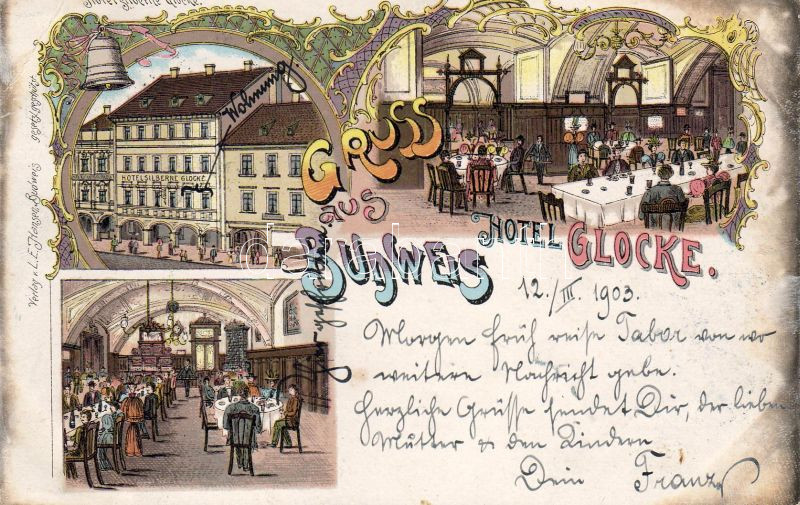 Hotel Silberne Glocke.
HOTEL SILBERNE GLOCKE
Wohnung.
GRUSS
aus
BUDWEIS
HOTEL GLOCKE.
12./III. 1903.
Morgen früh reise Tabor von wo
weitere Nachricht gebe.
Herzliche Grüsse sendet Dir, der lieben
Mutter & den Kindern
Dein Franz
Verlag v. L. E.